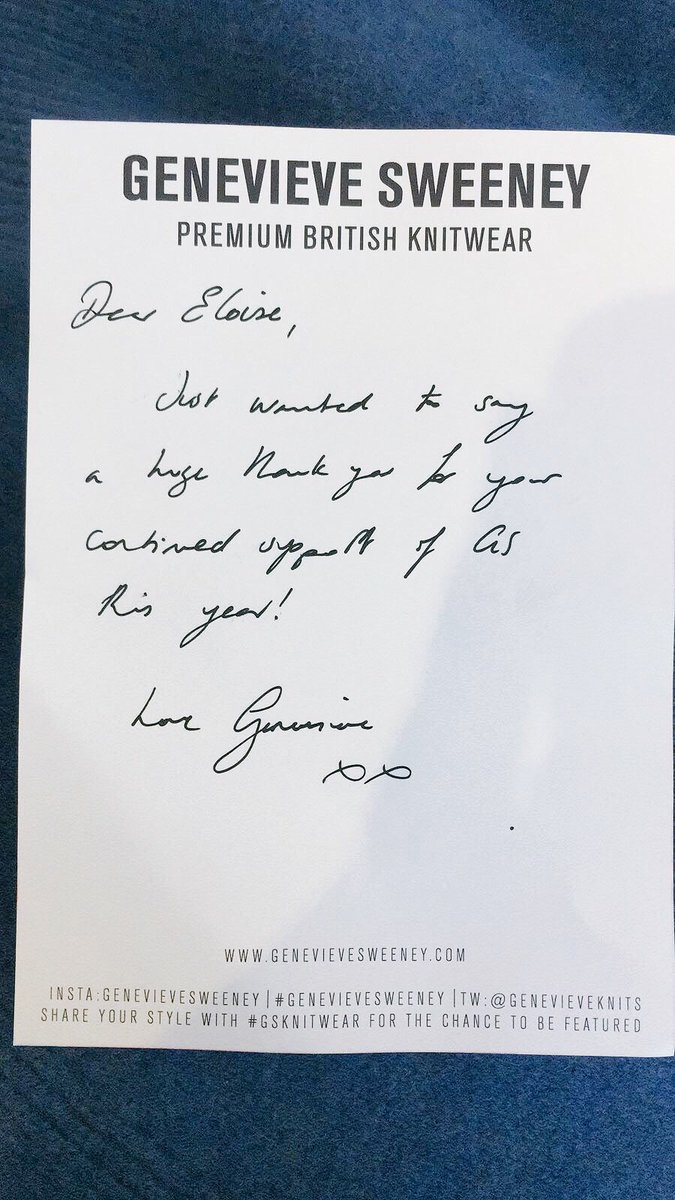 GENEVIEVE SWEENEY
PREMIUM BRITISH KNITWEAR
Dear Eloise,
Just wanted to say
a huge thank you for your
continued support of GS
this year!
Love Genevieve
xx
WWW.GENEVIEVESWEENEY.COM
INSTA:GENEVIEVESWEENEY|#GENEVIEVESWEENEY|TW:@GENEVIEVEKNITS
SHARE YOUR STYLE WITH #GSKNITWEAR FOR THE CHANCE TO BE FEATURED